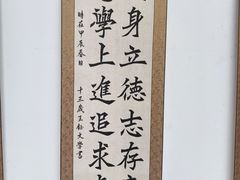 身立德志存高
學上進追求
時在甲辰春日
十三歲王鈺文學書